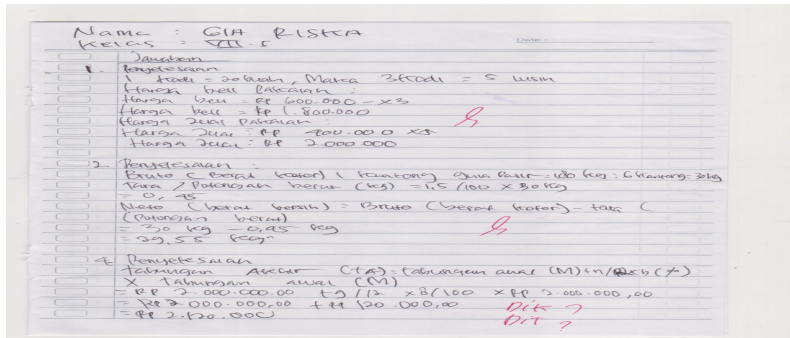 Nama : GIA RISKA
Kelas : VII.5
Date :
Jawaban
1. Penyelesaian
1 kodi = 20 buah, Maka 3 kodi = 5 lusin
Harga beli Pakaian :
Harga beli = RP 600.000 - x3
Harga beli = RP 1.800.000
Harga Jual Pakaian :
Harga Jual = RP 400.000 x5
Harga Jual = RP 2.000.000
2. Penyelesaian :
Bruto (berat kotor) 1 kantong gula Pasir = 180 kg : 6 kantong = 30 kg
Tara / Potongan berat (kg) = 1,5/100 x 30 kg
= 0,45
Neto (berat bersih) = Bruto (berat kotor) - tara (
(Potongan berat)
= 30 kg - 0,45 kg
= 29,55 kg
4. Penyelesaian
Tabungan Akhir (TA) = tabungan awal (M) + n/ x b (%)
x Tabungan awal (M)
= RP 2.000.000.00 + 9/12 x 8/100 x RP 2.000.000,00
= RP 2.000.000,00 + RP 120.000,00
= RP 2.120.000
Dik ?
DIT ?